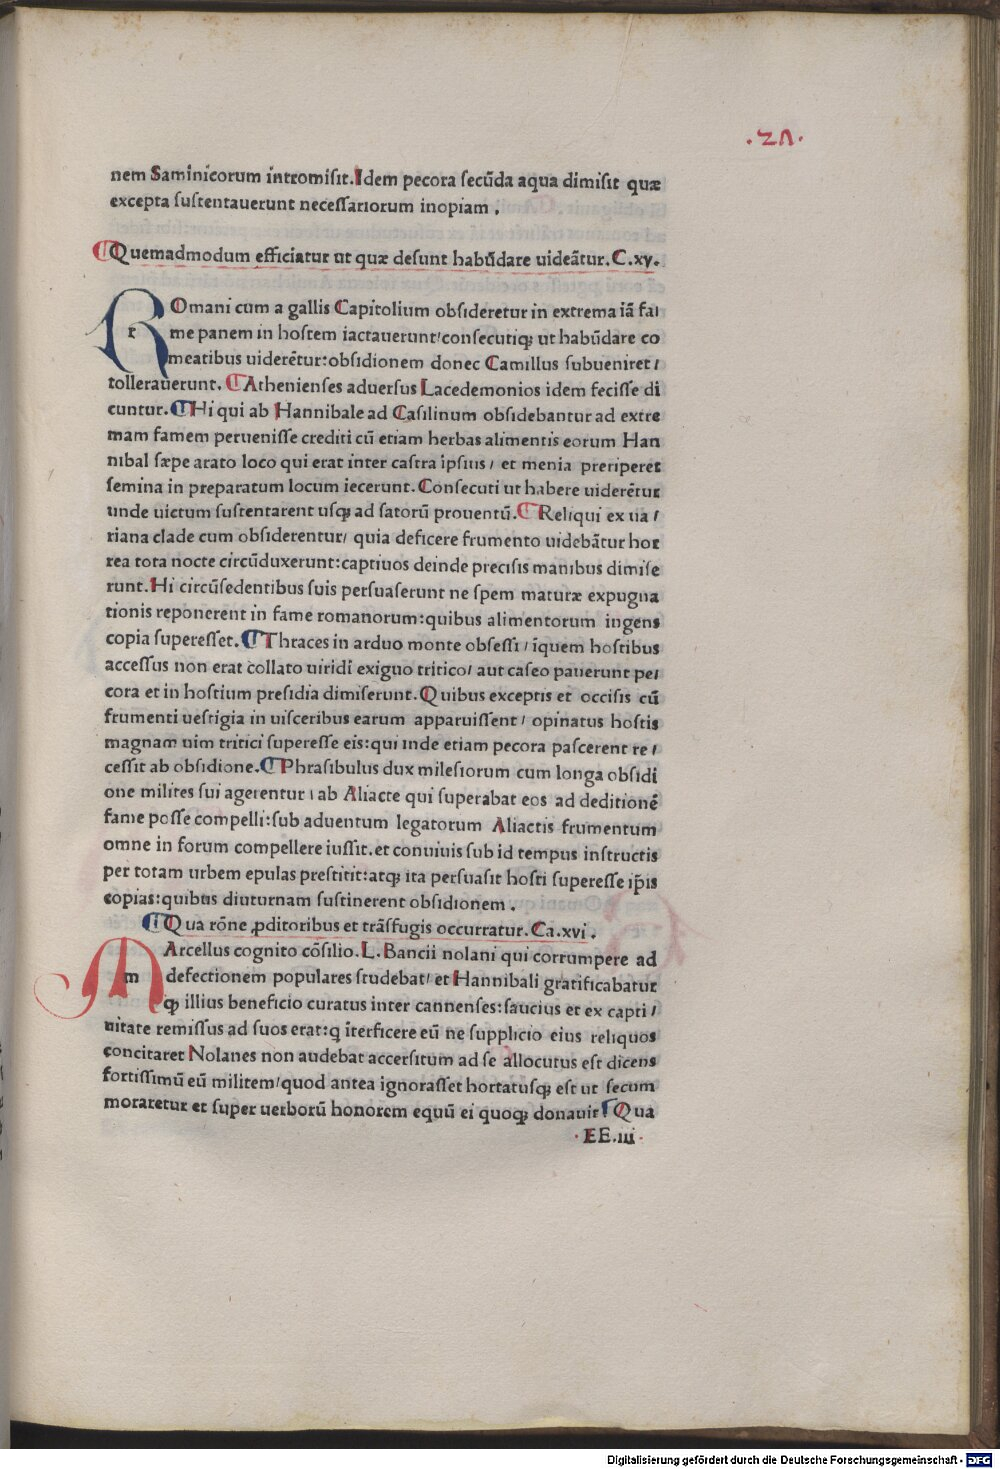 .21.
nem Saminicorum intromisit. Idem pecora secūda aqua dimisit quæ
excepta sustentauerunt necessariorum inopiam .
Quemadmodum efficiatur ut quæ desunt habūdare uideātur. C.xv.
ROmani cum a gallis Capitolium obsideretur in extrema iā fa/
me panem in hostem iactauerunt/consecutiq; ut habūdare co
meatibus uiderētur:obsidionem donec Camillus subueniret/
tollerauerunt. Athenienses aduersus Lacedemonios idem fecisse di
cuntur. Hi qui ab Hannibale ad Casilinum obsidebantur ad extre
mam famem peruenisse crediti cū etiam herbas alimentis eorum Han
nibal sæpe arato loco qui erat inter castra ipsius/ et menia preriperet
semina in preparatum locum iecerunt. Consecuti ut habere uiderētur
unde uictum sustentarent usq; ad satorū prouentū. Reliqui ex ua/
riana clade cum obsiderentur/ quia deficere frumento uidebātur hor
rea tota nocte circūduxerunt:captiuos deinde precisis manibus dimise
runt. Hi circūsedentibus suis persuaserunt ne spem maturæ expugna
tionis reponerent in fame romanorum:quibus alimentorum ingens
copia superesset. Thraces in arduo monte obsessi/ īquem hostibus
accessus non erat collato uiridi exiguo tritico/ aut caseo pauerunt pe/
cora et in hostium presidia dimiserunt. Quibus exceptis et occisis cū
frumenti uestigia in uisceribus earum apparuissent/ opinatus hostis
magnam uim tritici superesse eis:qui inde etiam pecora pascerent re/
cessit ab obsidione. Phrasibulus dux milesiorum cum longa obsidi
one milites sui agerentur/ ab Aliacte qui superabat eos ad deditionē
fame posse compelli:sub aduentum legatorum Aliactis frumentum
omne in forum compellere iussit.et conuiuis sub id tempus instructis
per totam urbem epulas prestitit:atq; ita persuasit hosti superesse ip̄is
copias:quibus diuturnam sustinerent obsidionem .
Qua rōne ꝓditoribus et trāsfugis occurratur. Ca.xvi .
MArcellus cognito cōsilio. L. Bancii nolani qui corrumpere ad
defectionem populares studebat/ et Hannibali gratificabatur
q; illius beneficio curatus inter cannenses:saucius et ex capti/
uitate remissus ad suos erat:q īterficere eū ne supplicio eius reliquos
concitaret Nolanes non audebat accersitum ad se allocutus est dicens
fortissimū eū militem/quod antea ignorasset hortatusq; est ut secum
moraretur et super uerborū honorem equū ei quoq; donauit Qua
EE.iii
Digitalisierung gefördert durch die Deutsche Forschungsgemeinschaft - DFG